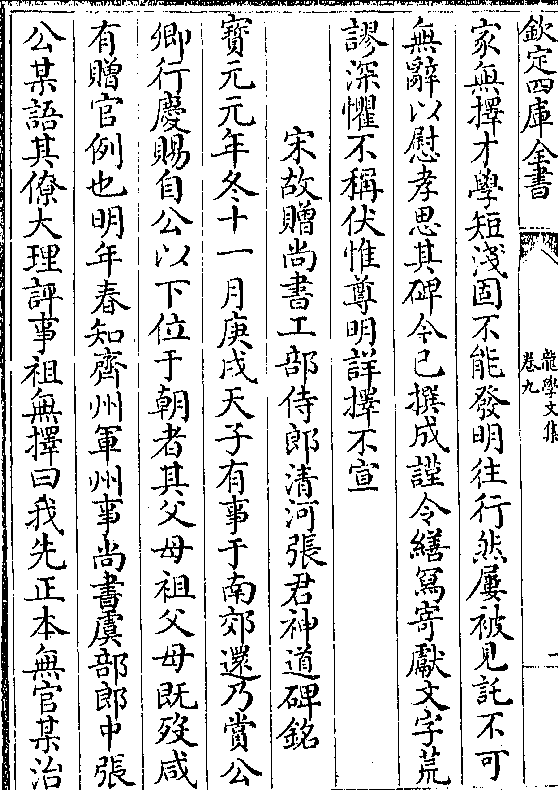 欽定四庫全書
龍學文集
卷九
家無擇才學短淺固不能發明往行然屢被見託不可
無辭以慰孝思其碑今已撰成謹令繕寫寄獻文字荒
謬深懼不稱伏惟尊明詳擇不宣
宋故贈尚書工部侍郎清河張君神道碑銘
寶元元年冬十一月庚戌天子有事于南郊還乃賞公
卿行慶賜自公以下位于朝者其父母祖父母既歿咸
有贈官例也明年春知齊州軍州事尚書虞部郎中張
公某語其僚大理評事祖無擇曰我先正本無官某治